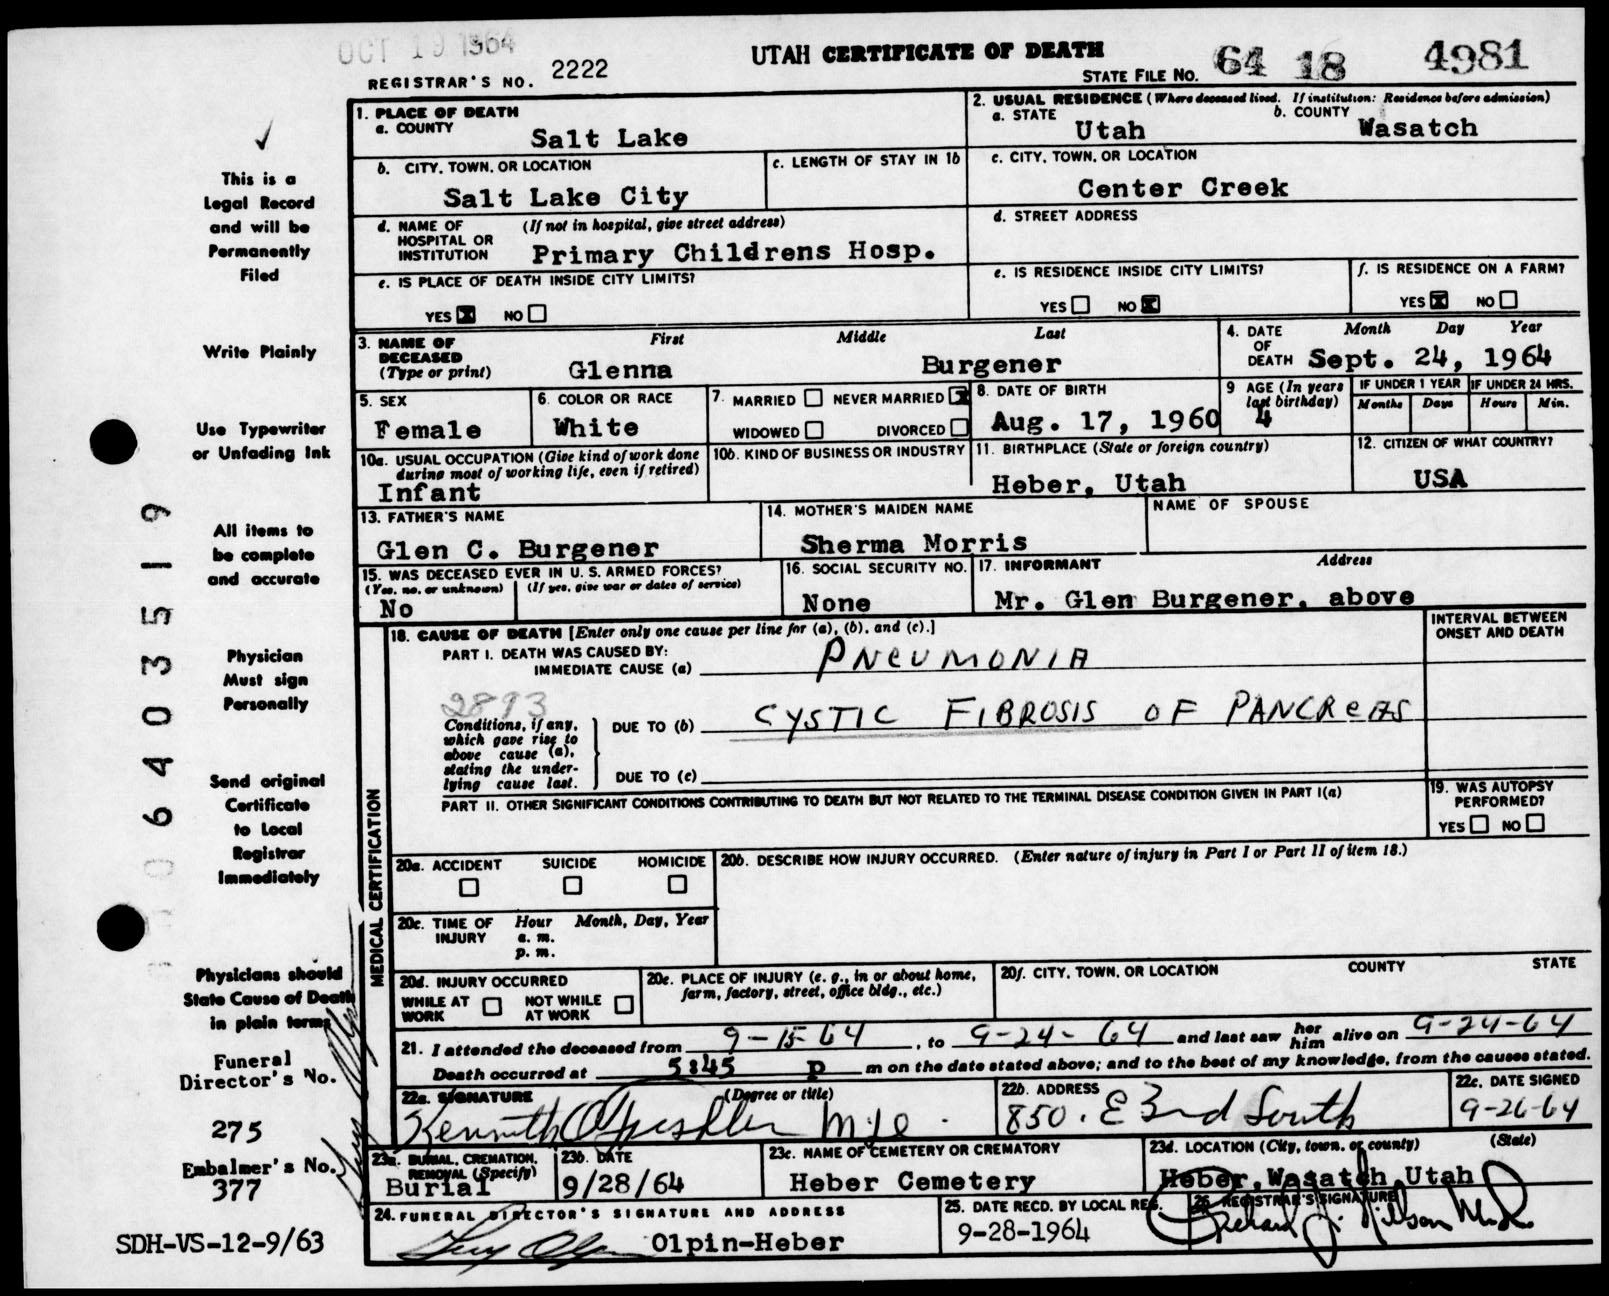 OCT 19 1964
UTAH CERTIFICATE OF DEATH
REGISTRAR'S NO. 2222
STATE FILE NO. 64 18 4981
1. PLACE OF DEATH
a. COUNTY
Salt Lake
2. USUAL RESIDENCE (Where deceased lived. If institution: Residence before admission)
a. STATE Utah
b. COUNTY Wasatch
b. CITY, TOWN, OR LOCATION
Salt Lake City
c. LENGTH OF STAY IN 1b
c. CITY, TOWN, OR LOCATION
Center Creek
d. NAME OF HOSPITAL OR INSTITUTION (If not in hospital, give street address)
Primary Childrens Hosp.
d. STREET ADDRESS
e. IS PLACE OF DEATH INSIDE CITY LIMITS?
YES NO
e. IS RESIDENCE INSIDE CITY LIMITS?
YES NO
f. IS RESIDENCE ON A FARM?
YES NO
3. NAME OF DECEASED (Type or print)
First Middle Last
Glenna Burgener
4. DATE OF DEATH
Month Day Year
Sept. 24, 1964
5. SEX
Female
6. COLOR OR RACE
White
7. MARRIED NEVER MARRIED
WIDOWED DIVORCED
8. DATE OF BIRTH
Aug. 17, 1960
9 AGE (In years last birthday)
4
IF UNDER 1 YEAR IF UNDER 24 HRS.
Months Days Hours Min.
10a. USUAL OCCUPATION (Give kind of work done during most of working life, even if retired)
Infant
10b. KIND OF BUSINESS OR INDUSTRY
11. BIRTHPLACE (State or foreign country)
Heber, Utah
12. CITIZEN OF WHAT COUNTRY?
USA
13. FATHER'S NAME
Glen C. Burgener
14. MOTHER'S MAIDEN NAME
Sherma Morris
NAME OF SPOUSE
15. WAS DECEASED EVER IN U. S. ARMED FORCES?
(Yes, no, or unknown) (If yes, give war or dates of service)
No
16. SOCIAL SECURITY NO.
None
17. INFORMANT Address
Mr. Glen Burgener, above
MEDICAL CERTIFICATION
18. CAUSE OF DEATH [Enter only one cause per line for (a), (b), and (c).]
INTERVAL BETWEEN ONSET AND DEATH
PART I. DEATH WAS CAUSED BY:
IMMEDIATE CAUSE (a) PNEUMONIA
2893
Conditions, if any, which gave rise to above cause (a), stating the underlying cause last.
DUE TO (b) CYSTIC FIBROSIS OF PANCREAS
DUE TO (c)
PART II. OTHER SIGNIFICANT CONDITIONS CONTRIBUTING TO DEATH BUT NOT RELATED TO THE TERMINAL DISEASE CONDITION GIVEN IN PART I(a)
19. WAS AUTOPSY PERFORMED?
YES NO
20a. ACCIDENT SUICIDE HOMICIDE
20b. DESCRIBE HOW INJURY OCCURRED. (Enter nature of injury in Part I or Part II of item 18.)
20c. TIME OF INJURY Hour Month, Day, Year
a. m.
p. m.
20d. INJURY OCCURRED
WHILE AT WORK NOT WHILE AT WORK
20e. PLACE OF INJURY (e. g., in or about home, farm, factory, street, office bldg., etc.)
20f. CITY, TOWN, OR LOCATION COUNTY STATE
21. I attended the deceased from 9-15-64, to 9-24-64 and last saw her him alive on 9-24-64
Death occurred at 5:45 p m on the date stated above; and to the best of my knowledge, from the causes stated.
22a. SIGNATURE (Degree or title)
Kenneth
22b. ADDRESS
850. E 3rd South
22c. DATE SIGNED
9-26-64
23a. BURIAL, CREMATION, REMOVAL (Specify)
Burial
23b. DATE
9/28/64
23c. NAME OF CEMETERY OR CREMATORY
Heber Cemetery
23d. LOCATION (City, town, or county) (State)
Heber, Wasatch Utah
24. FUNERAL DIRECTOR'S SIGNATURE AND ADDRESS
Olpin-Heber
25. DATE RECD. BY LOCAL REG.
9-28-1964
26. REGISTRAR'S SIGNATURE
This is a
Legal Record
and will be
Permanently
Filed
Write Plainly
Use Typewriter
or Unfading Ink
All items to
be complete
and accurate
Physician
Must sign
Personally
Send original
Certificate
to Local
Registrar
Immediately
Physicians should
State Cause of Death
in plain terms
Funeral
Director's No.
275
Embalmer's No.
377
SDH-VS-12-9/63
640 3519